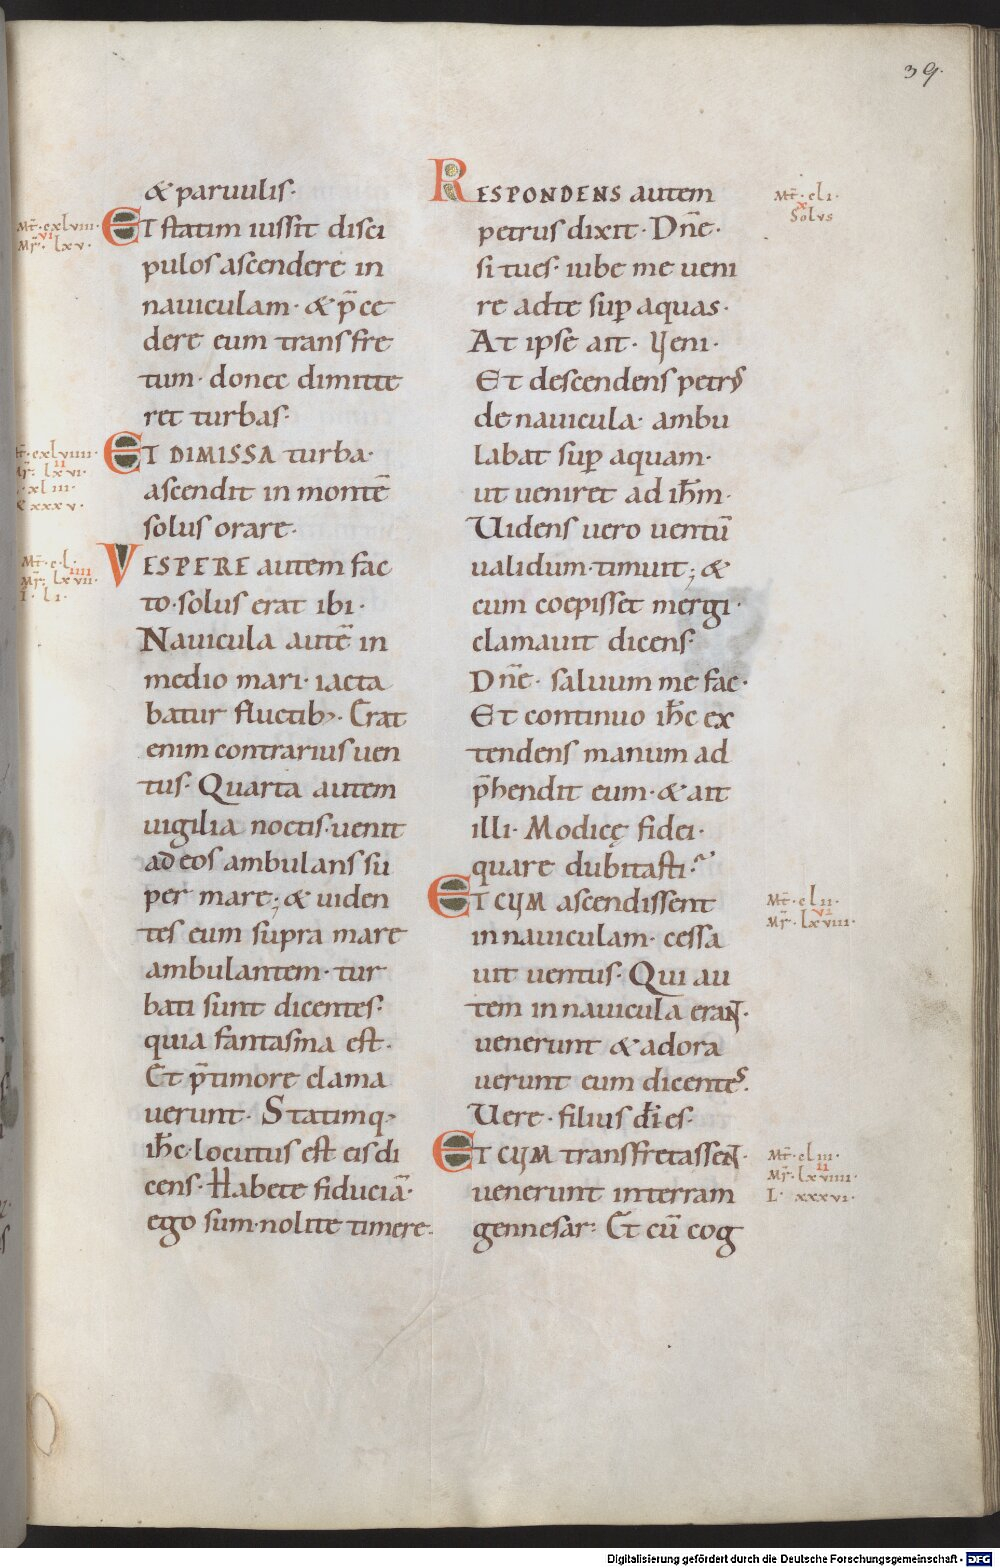 39.
& paruulis·
Mt̄· cxlviii·
vi
Mr̄· lxv·
ET statim iussit disci
pulos ascendere in
nauiculam· & p̄ce
dere eum trans fre
tum· donec dimitte
ret turbas·
Mt̄· cxlviiii·
ii
Mr̄· lxvi·
xliii·
xxxv·
ET DIMISSA turba·
ascendit in montē
solus orare·
Mt̄· cl·
iiii
Mr̄· lxvii·
I· li·
VESPERE autem fac
to· solus erat ibi·
Nauicula autē in
medio mari· iacta
batur fluctib;· Erat
enim contrarius uen
tus· Quarta autem
uigilia noctis· uenit
ad eos ambulans su
per mare; & uiden
tes eum supra mare
ambulantem· tur
bati sunt dicentes·
quia fantasma est·
Et p̄ timore clama
uerunt· Statimq;
ih̄c· locutus est eis di
cens· Habete fiduciā·
ego sum· nolite timere·
RESPONDENS autem
Mt̄· cli·
x
Solus
petrus dixit· Dn̄e·
si tu es· iube me ueni
re ad te sup̱ aquas·
At ipse ait· Veni·
Et descendens petrꝰ
de nauicula· ambu
labat sup̱ aquam·
ut ueniret ad ih̄m·
Uidens uero uentū
ualidum· timuit; &
cum coepisset mergi·
clamauit dicens·
Dn̄e· saluum me fac·
Et continuo ih̄c ex
tendens manum ad
p̄hendit eum· & ait
illi· Modicę fidei·
quare dubitasti?
ET CUM ascendissent
Mt̄· clii·
vi
Mr̄· lxviii·
in nauiculam· cessa
uit uentus· Qui au
tem in nauicula erant·
uenerunt & adora
uerunt eum dicentes·
Uere· filius d̄i es·
ET CUM transfretassent·
Mt̄· cliii·
ii
Mr̄· lxviiii·
L· xxxvi·
uenerunt in terram
gennesar· Et cū cog
Digitalisierung gefördert durch die Deutsche Forschungsgemeinschaft - DFG